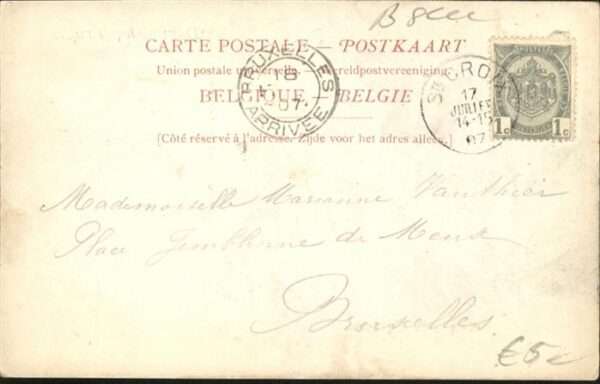 CARTE POSTALE – POSTKAART
Union postale universelle. Wereldpostvereeniging.
BELGIQUE BELGIE
[Côté réservé à l'adresse. Zijde voor het adres alleen.]
BRUXELLES
18
07
ARRIVÉE
17
JUILLET
14-15
07
1c 1c
Mademoiselle Marianne Vanthier
Place de Meus
Bruxelles
€5